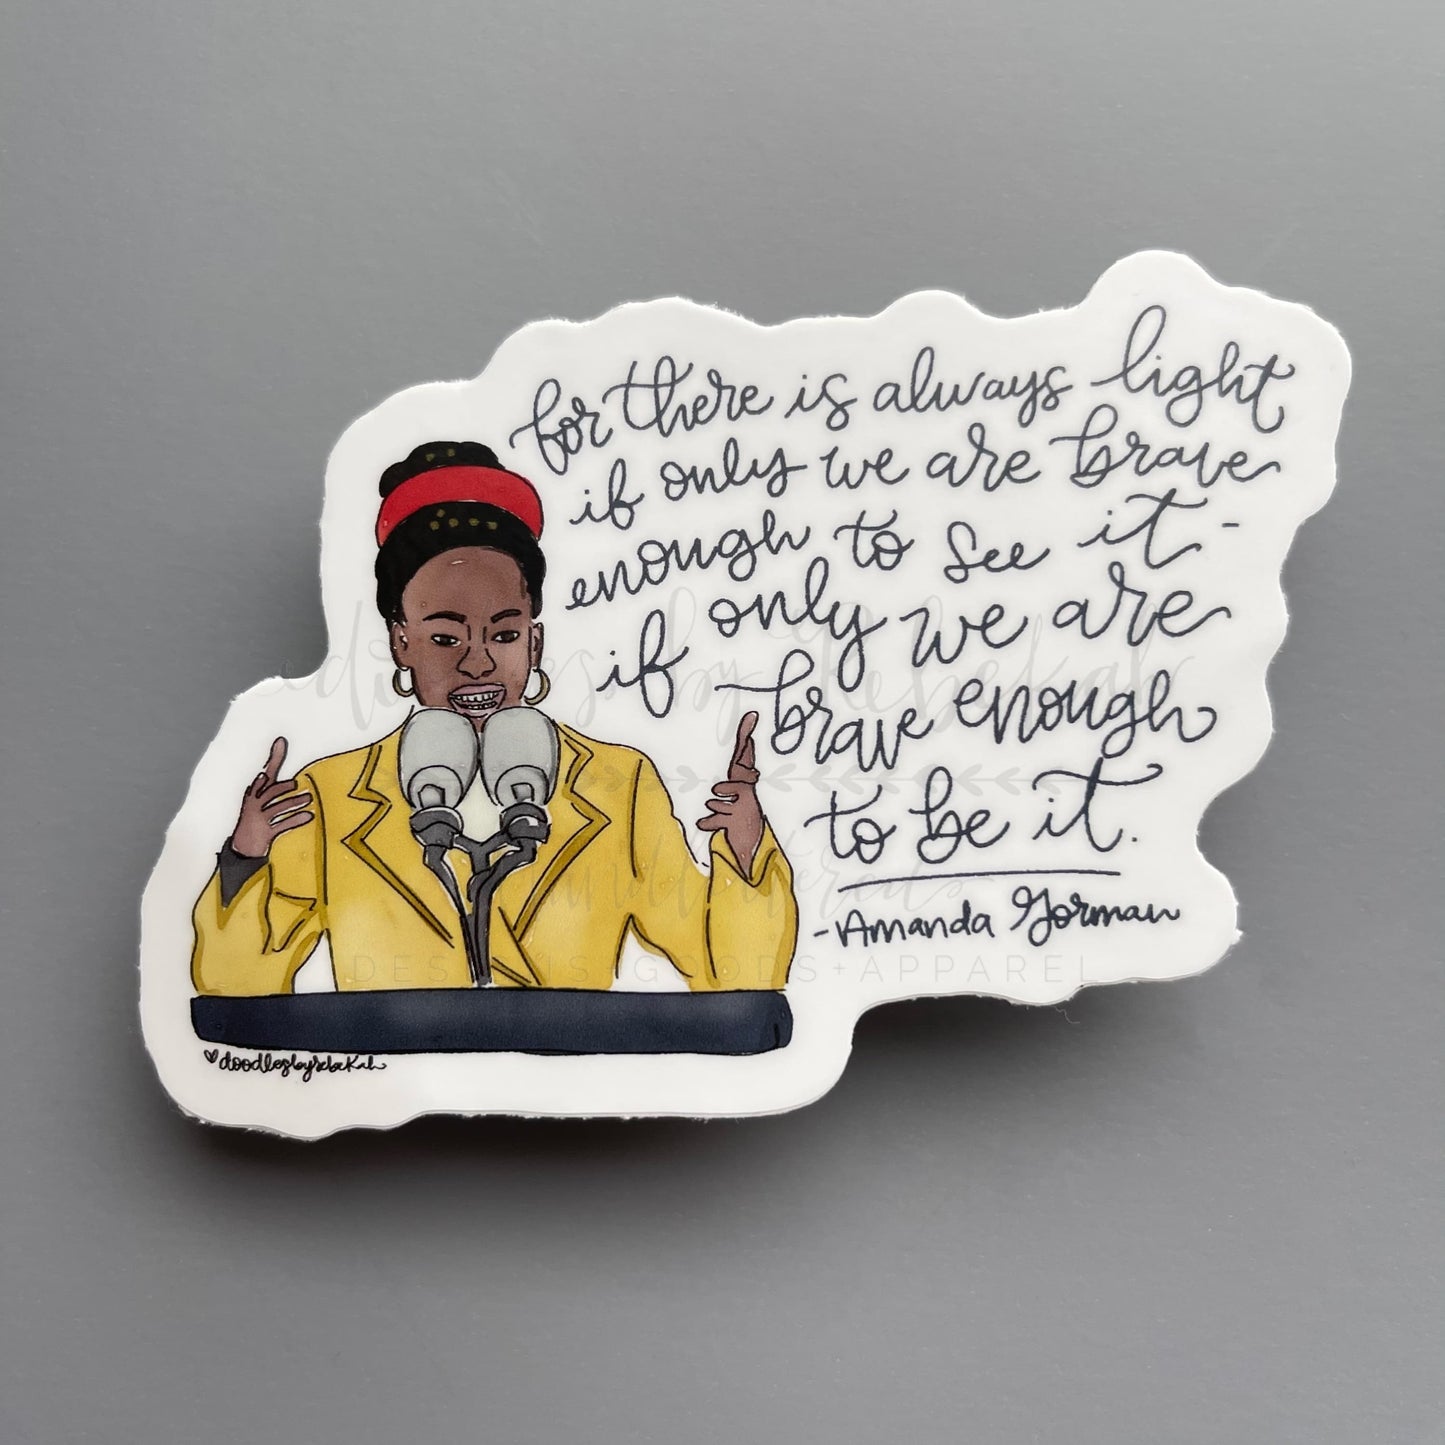 for there is always light
if only we are brave
enough to see it -
if only we are
brave enough
to be it.
-Amanda Gorman
doodles by Rebekah
DESIGNS GOODS + APPAREL
doodlesbyrebekah